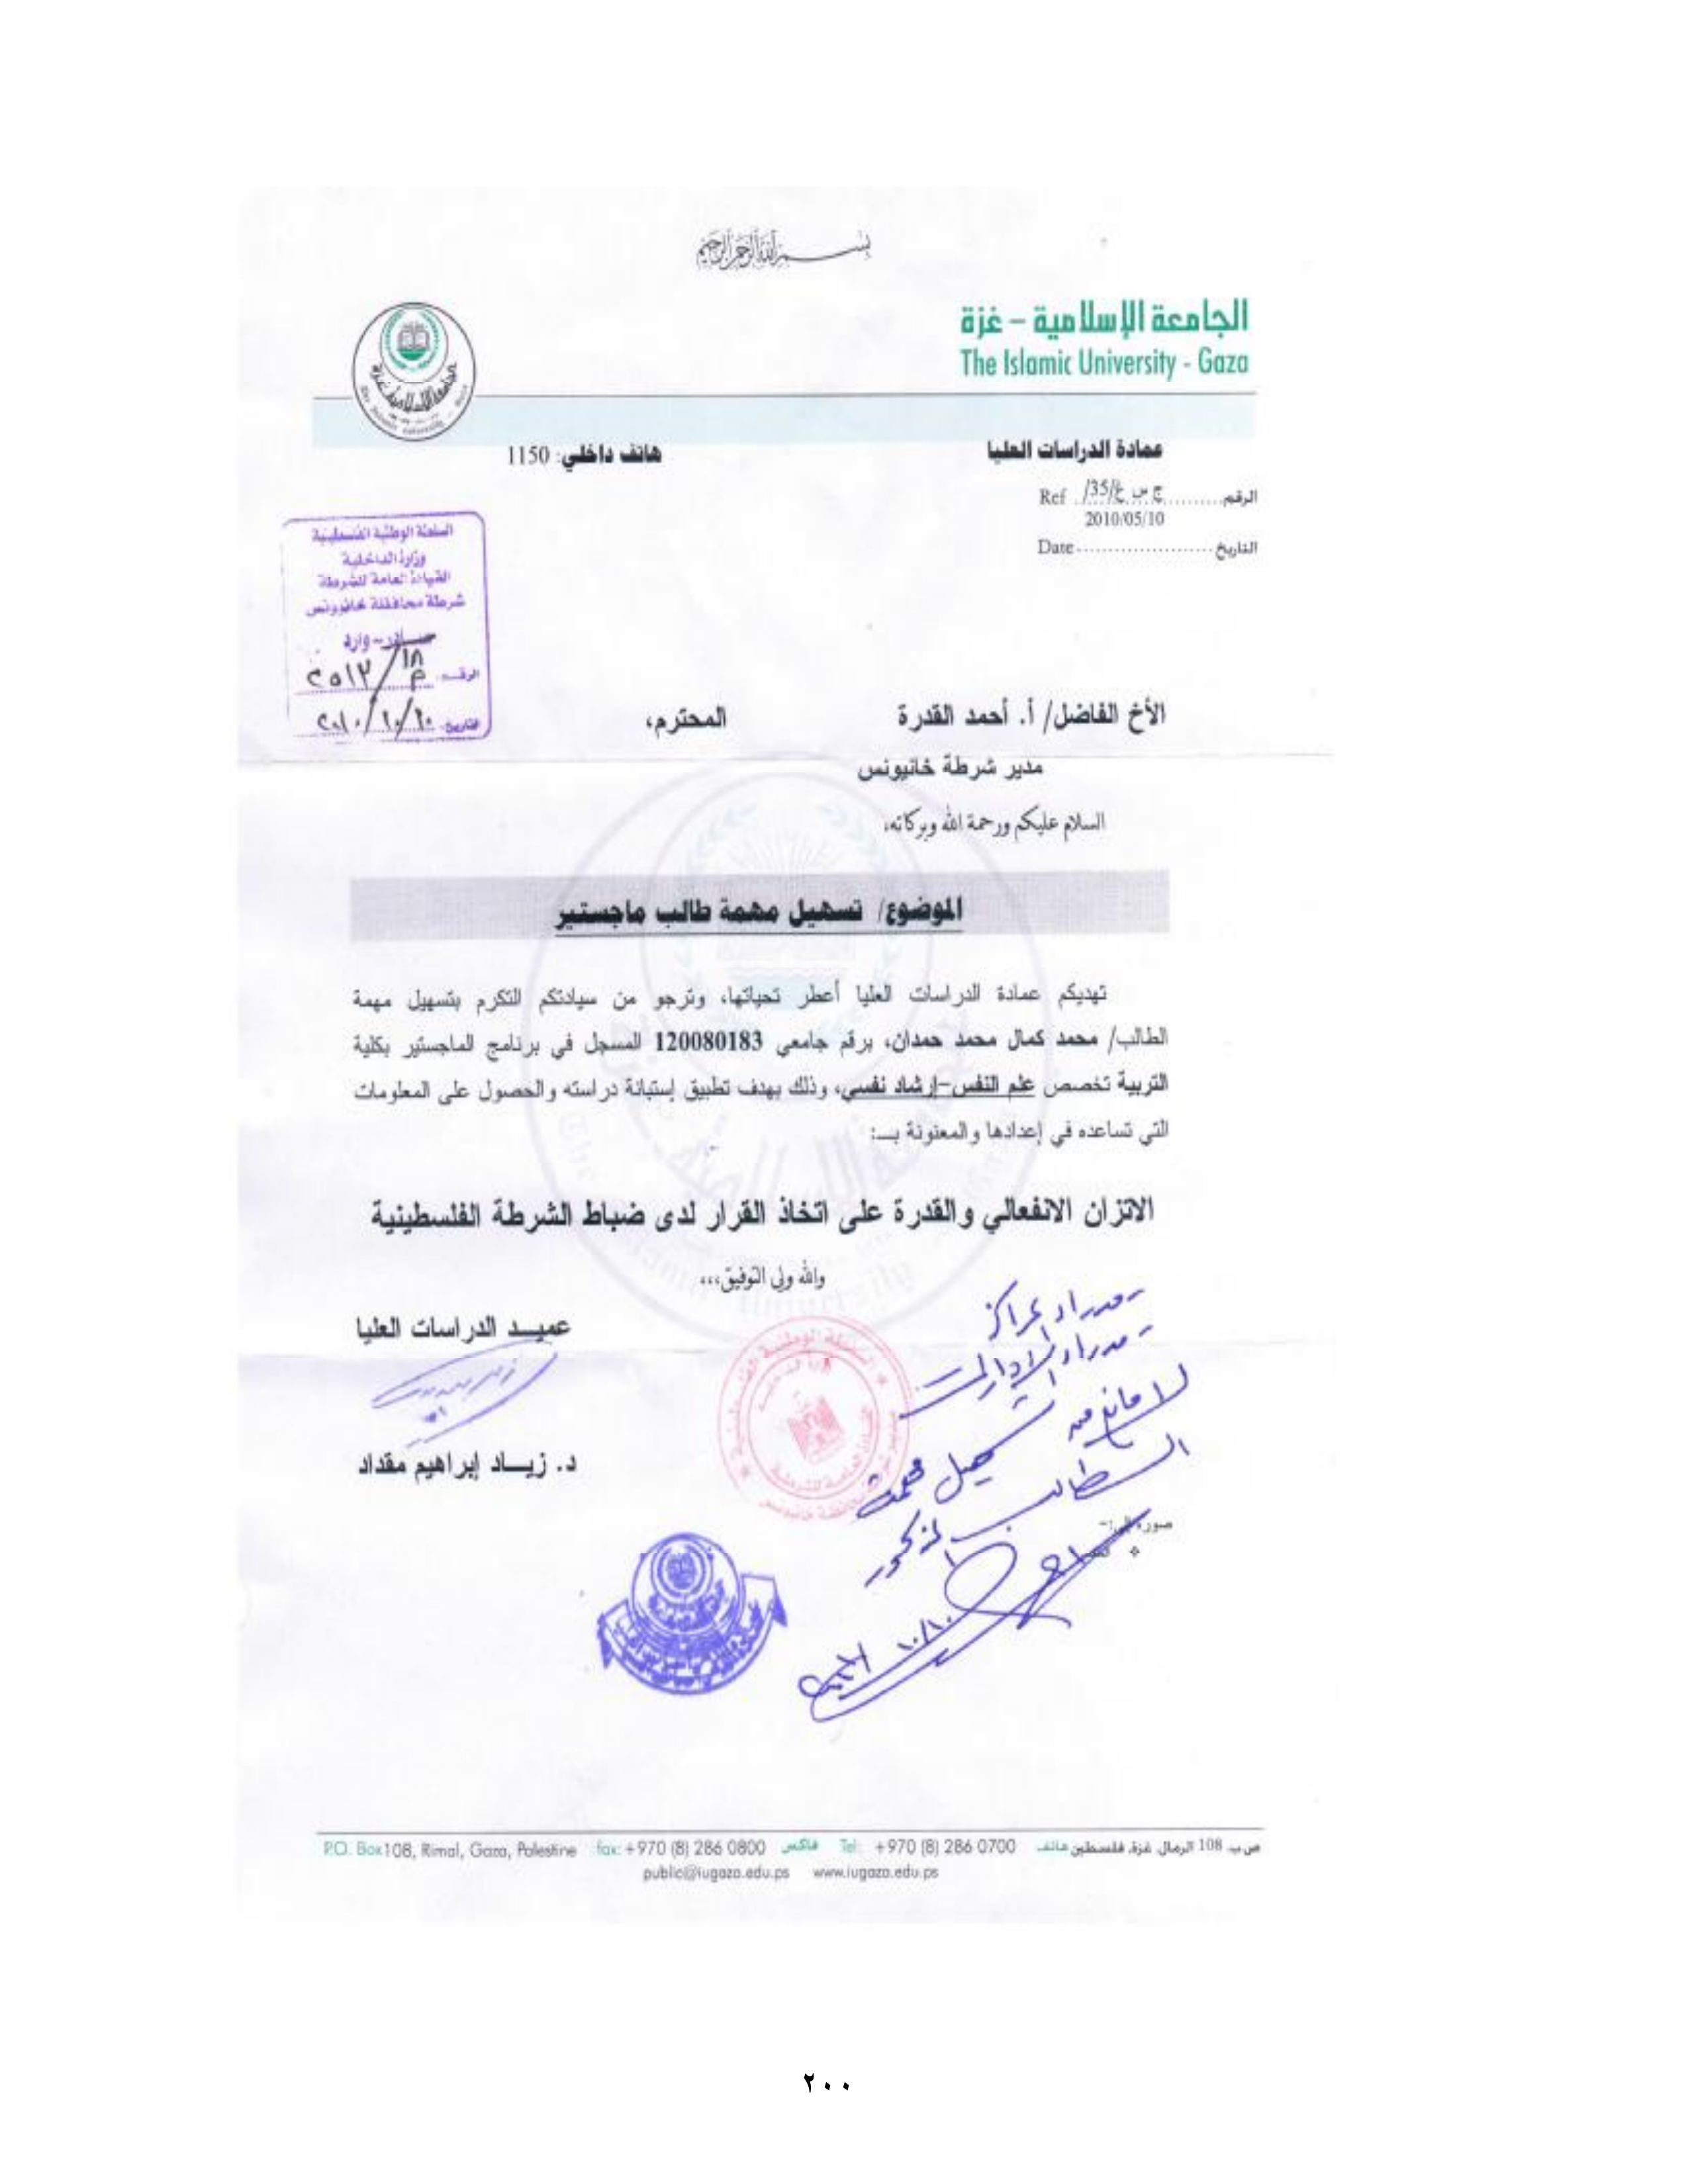 بسم الله الرحمن الرحيم
الجامعة الإسلامية – غزة
The Islamic University - Gaza
هاتف داخلي: 1150
عمادة الدراسات العليا
الرقم.......... ج س غ/35/ Ref
2010/05/10
التاريخ.......... Date
السلطة الوطنية الفلسطينية
وزارة الداخلية
القيادة العامة للشرطة
شرطة محافظة خانيونس
صادر - وارد
الرقم
التاريخ ٢٠١٠/١٠/١٠
الأخ الفاضل/ أ. أحمد القدرة المحترم،
مدير شرطة خانيونس
السلام عليكم ورحمة الله وبركاته،
الموضوع/ تسهيل مهمة طالب ماجستير
تهديكم عمادة الدراسات العليا أعطر تحياتها، وترجو من سيادتكم التكرم بتسهيل مهمة
الطالب/ محمد كمال محمد حمدان، برقم جامعي 120080183 المسجل في برنامج الماجستير بكلية
التربية تخصص علم النفس-إرشاد نفسي، وذلك بهدف تطبيق إستبانة دراسته والحصول على المعلومات
التي تساعده في إعدادها والمعنونة بـ:
الاتزان الانفعالي والقدرة على اتخاذ القرار لدى ضباط الشرطة الفلسطينية
والله ولي التوفيق،،،
عميد الدراسات العليا
د. زياد إبراهيم مقداد
لا مانع من
تسهيل مهمة
الطالب
المذكور
صورة إلى:-
P.O. Box 108, Rimal, Gaza, Palestine fax: +970 (8) 286 0800 فاكس Tel: +970 (8) 286 0700 ص.ب. 108 الرمال, غزة, فلسطين هاتف
public@iugaza.edu.ps www.iugaza.edu.ps
٢٠٠